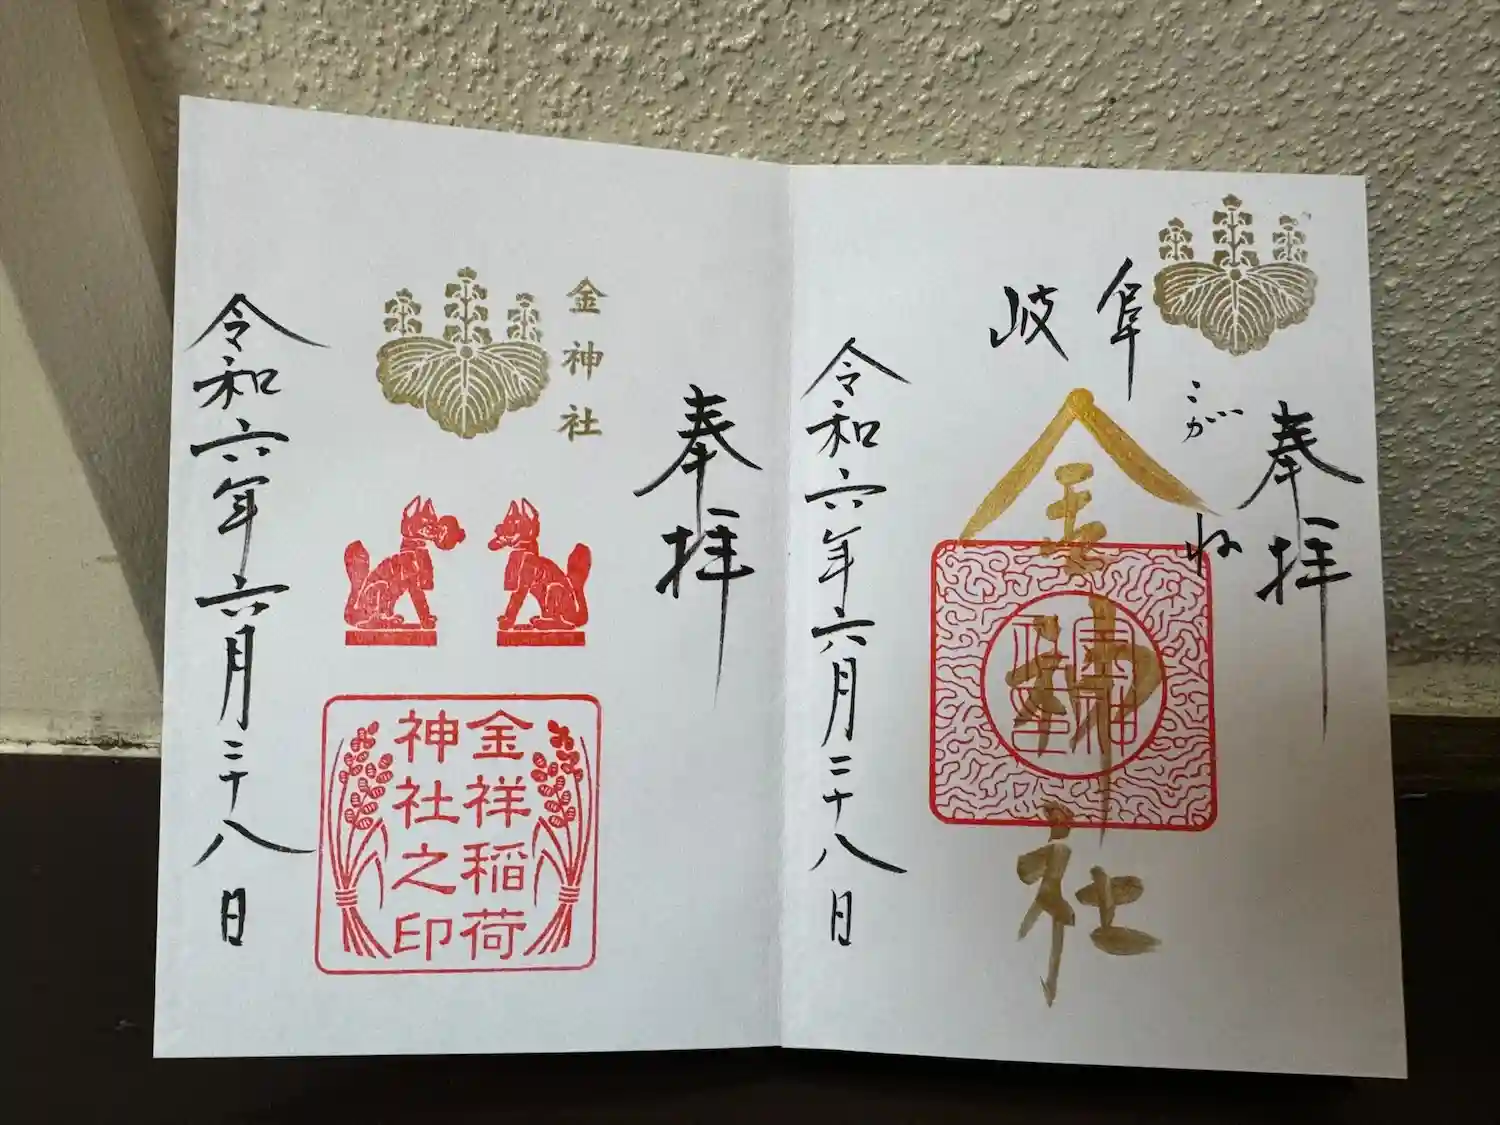 奉拝
こがね
岐阜
金神社
令和六年六月二十八日
奉拝
金神社
金祥稲荷
神社之印
令和六年六月二十八日